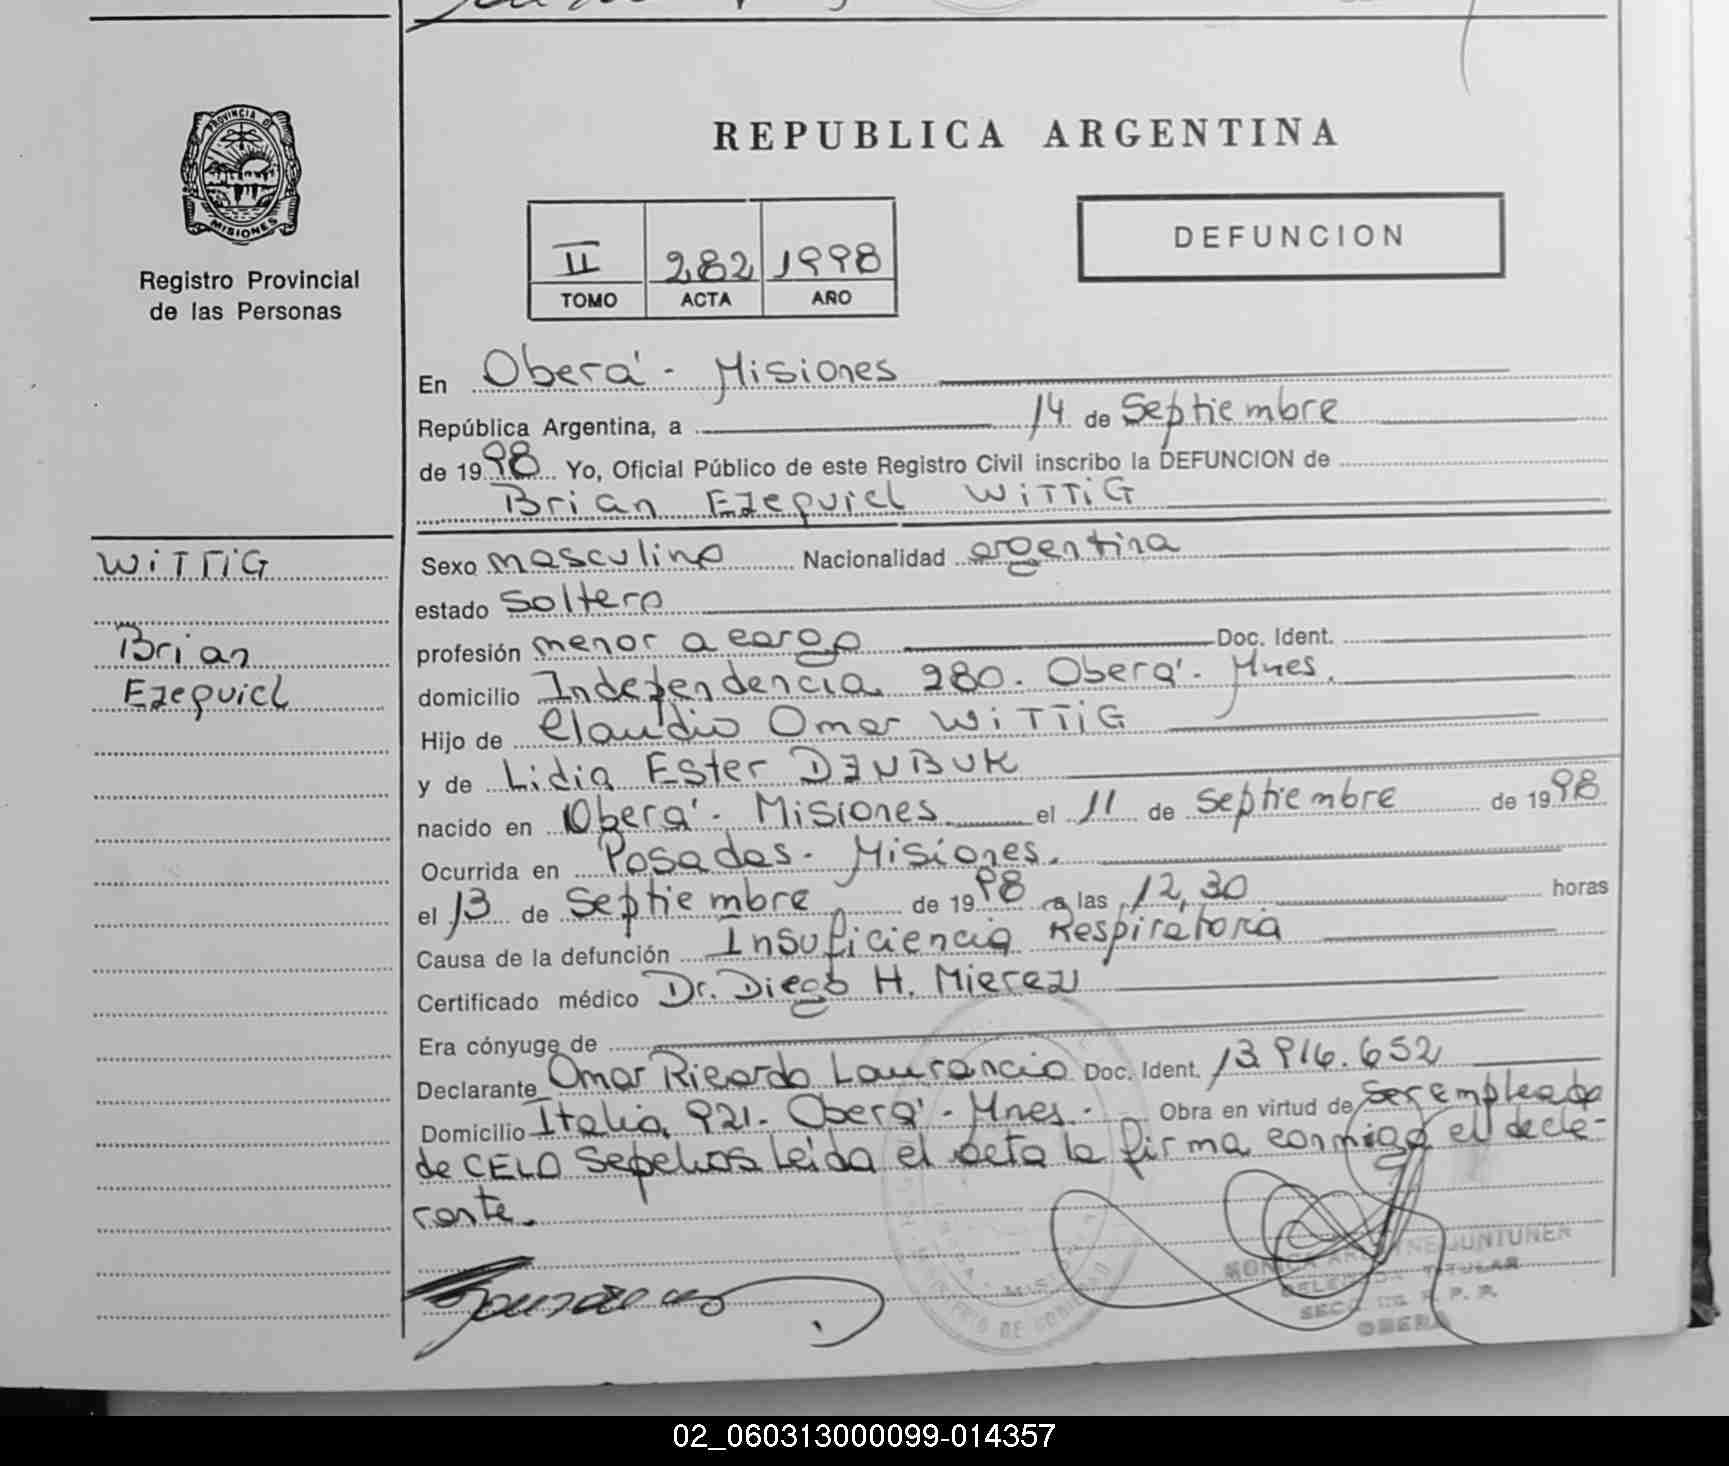 PROVINCIA DE
MISIONES
Registro Provincial
de las Personas
REPUBLICA ARGENTINA
II 282 1998
TOMO ACTA AÑO
DEFUNCION
En Oberá - Misiones
República Argentina, a 14 de Septiembre
de 1998 Yo, Oficial Público de este Registro Civil inscribo la DEFUNCION de
Brian Ezequiel WiTTiG
WiTTiG
Brian
Ezequiel
Sexo masculino Nacionalidad argentina
estado Soltero
profesión menor a cargo Doc. Ident.
domicilio Independencia 280. Oberá. Mnes.
Hijo de Claudio Omar WiTTiG
y de Lidia Ester DZUBUK
nacido en Oberá. Misiones el 11 de Septiembre de 1998
Ocurrida en Posadas. Misiones.
el 13 de Septiembre de 1998 a las 12,30 horas
Causa de la defunción Insuficiencia Respiratoria
Certificado médico Dr. Diego H. Mierez
Era cónyuge de
Declarante Omar Ricardo Laurancio Doc. Ident. 13.916.652
Domicilio Italia 921. Oberá. Mnes. Obra en virtud de ser empleado
de CELO Sepelios Leída el acta la firma conmigo el decla-
rante.
MINISTERIO DE GOBIERNO
DELEGADA TITULAR
SECC. R. P. P.
OBERA
02_060313000099-014357